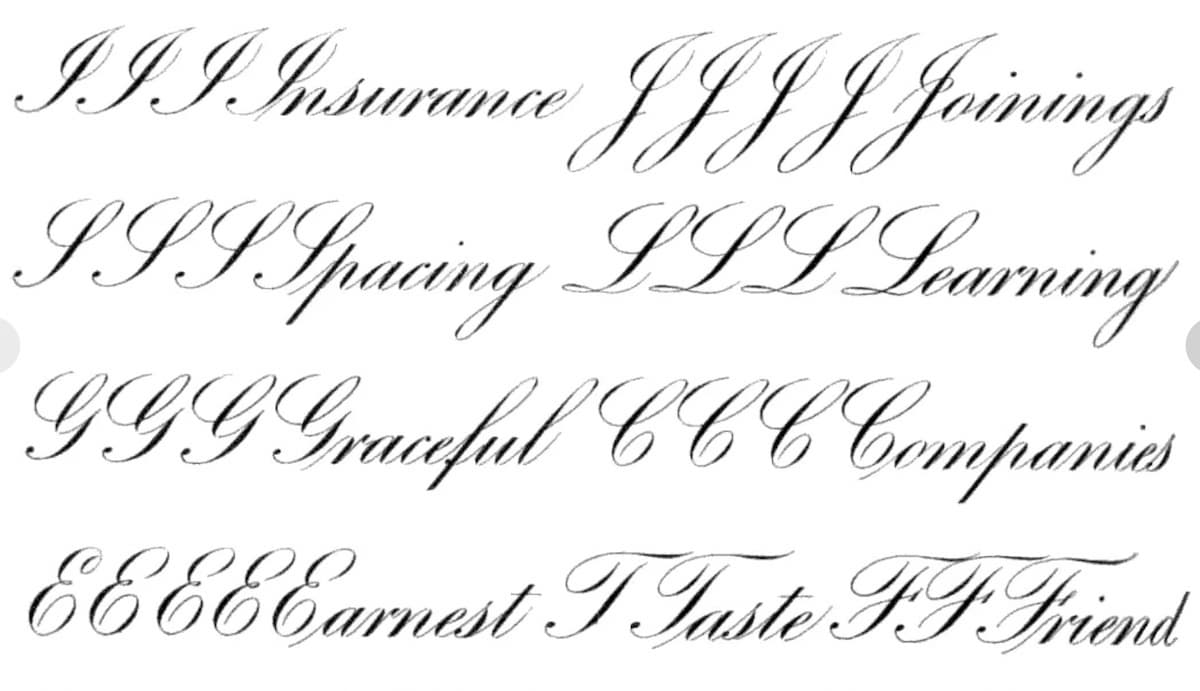 I I I Insurance J J J J Joinings
S S S Spacing L L L Learning
G G G Graceful C C C Companies
E E E E Earnest T Taste F F Friend